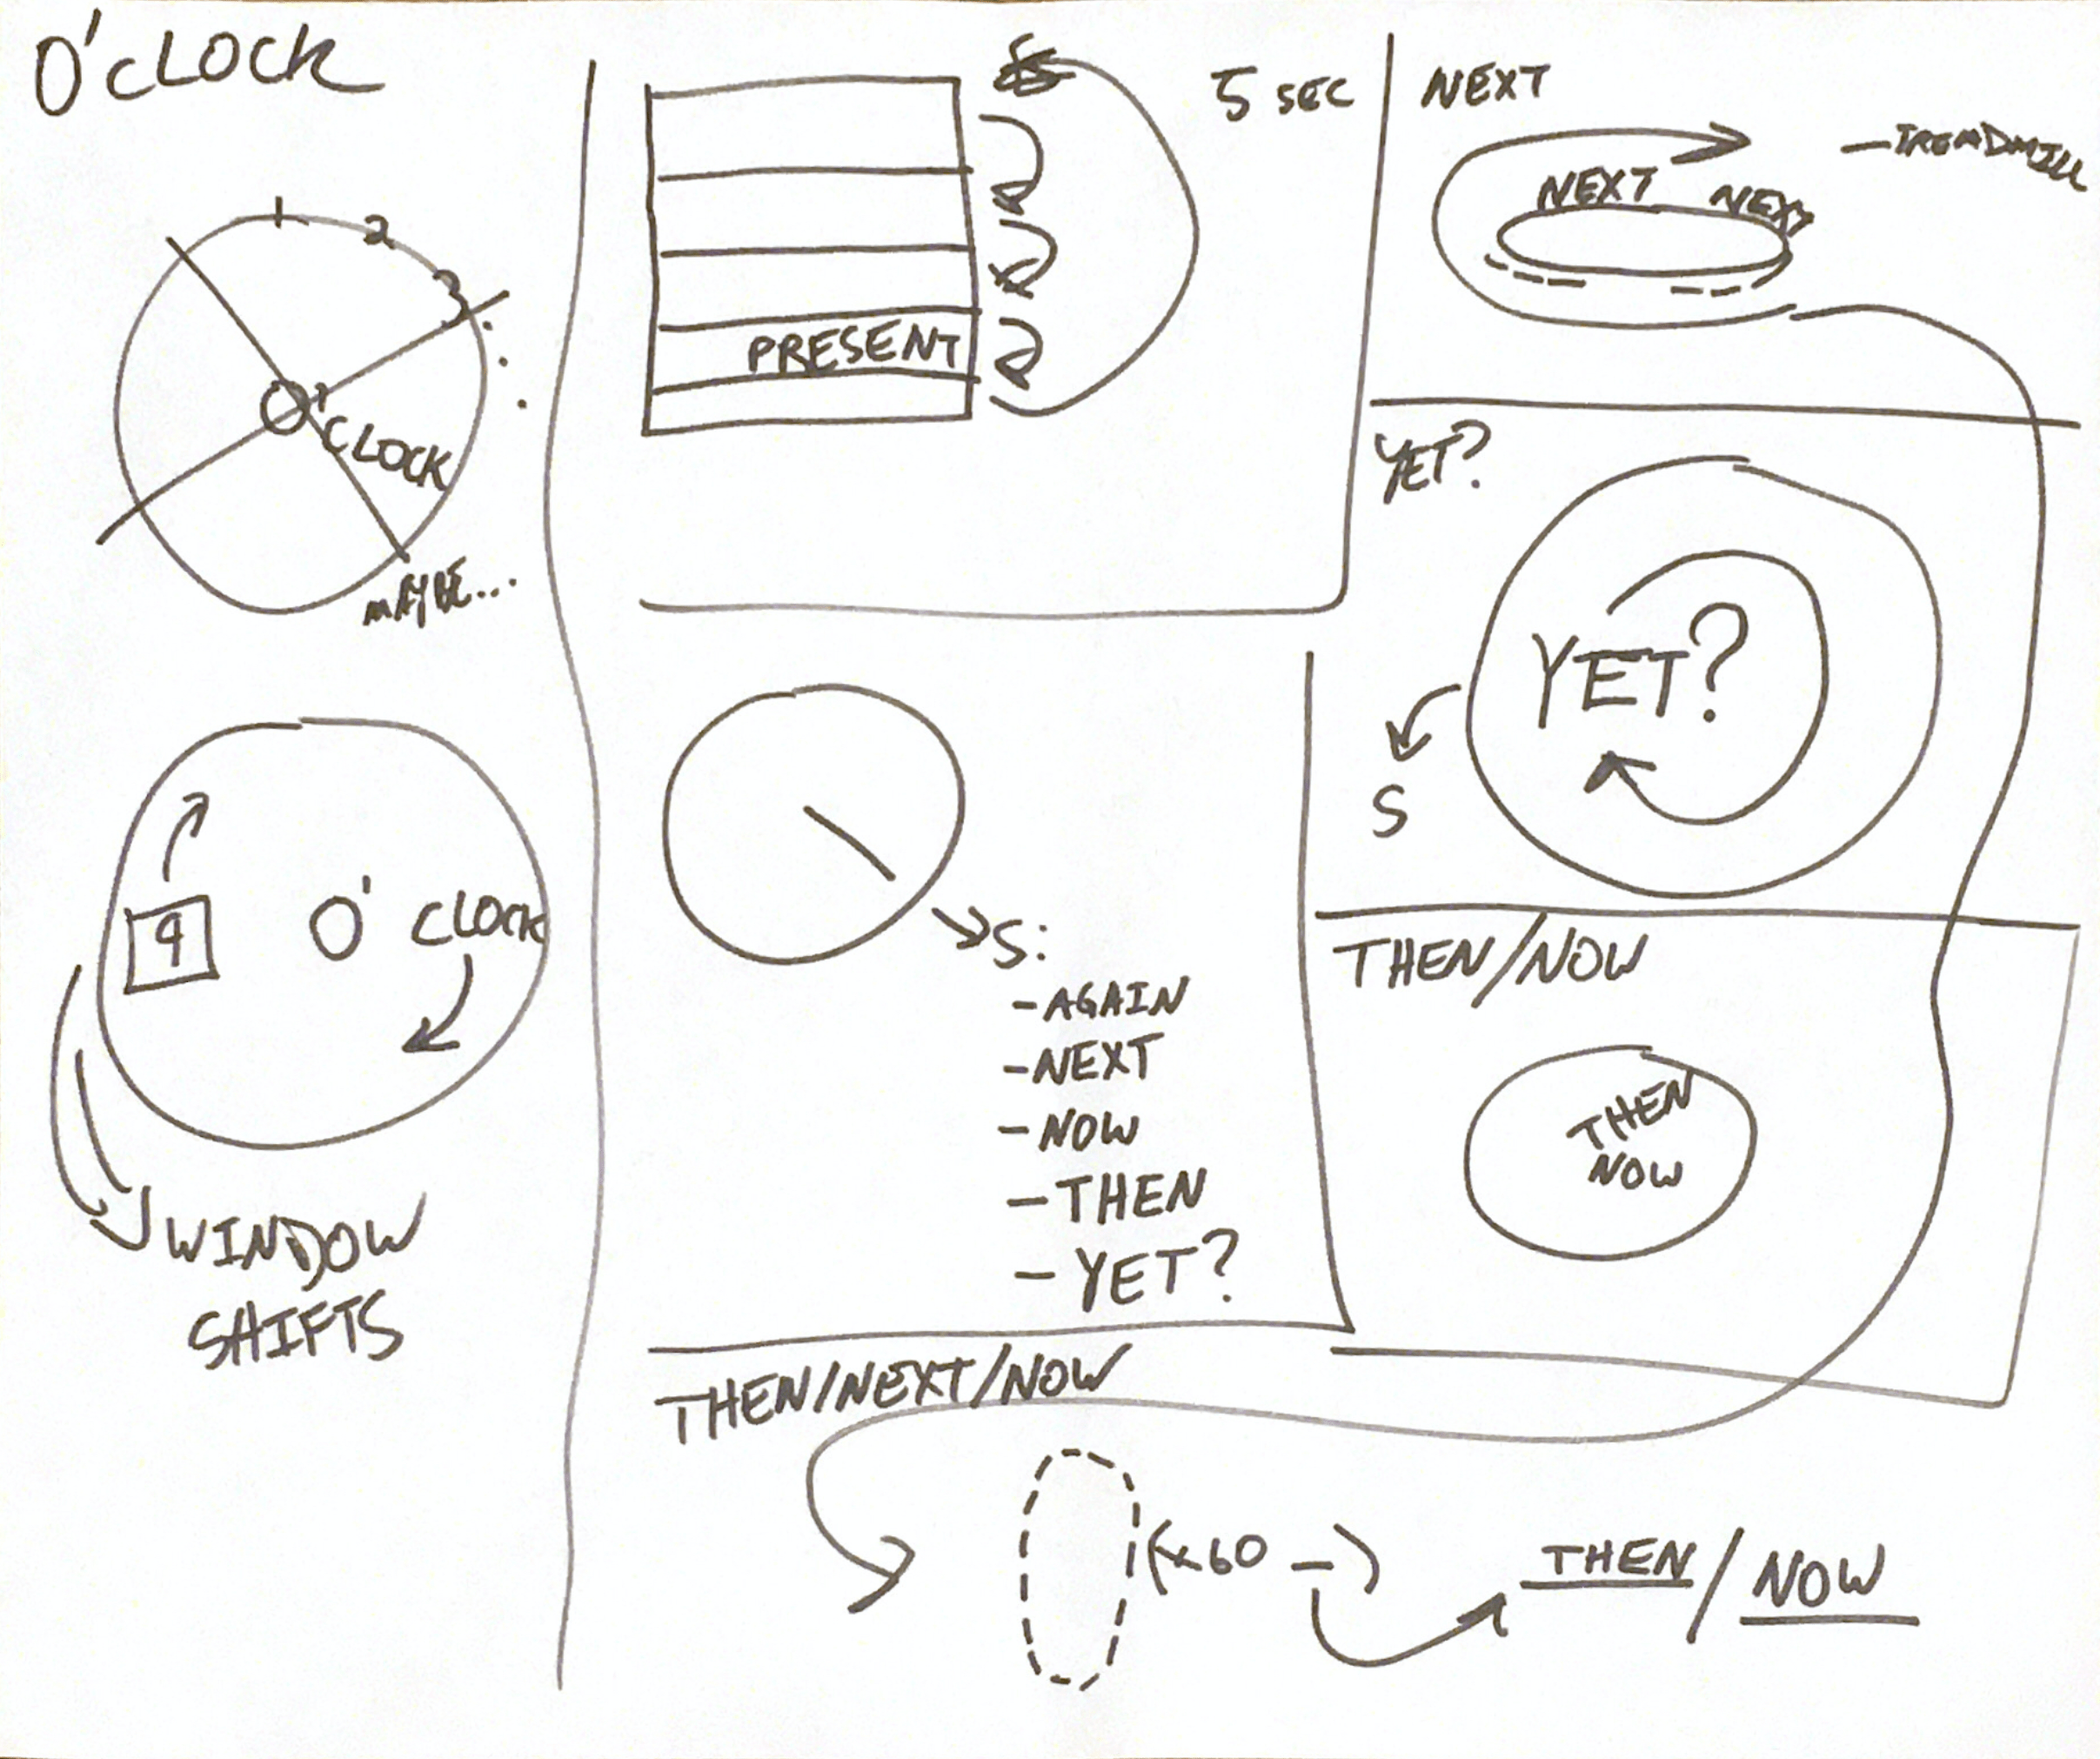 O'CLOCK
1
2
3
O'
CLOCK
MAYBE...
9 O' CLOCK
WINDOW
SHIFTS
5 SEC
PRESENT
S:
- AGAIN
- NEXT
- NOW
- THEN
- YET?
NEXT
- TREADMILL
NEXT NEXT
YET?
YET?
S
THEN/NOW
THEN
NOW
THEN/NEXT/NOW
(x60 - )
THEN/NOW